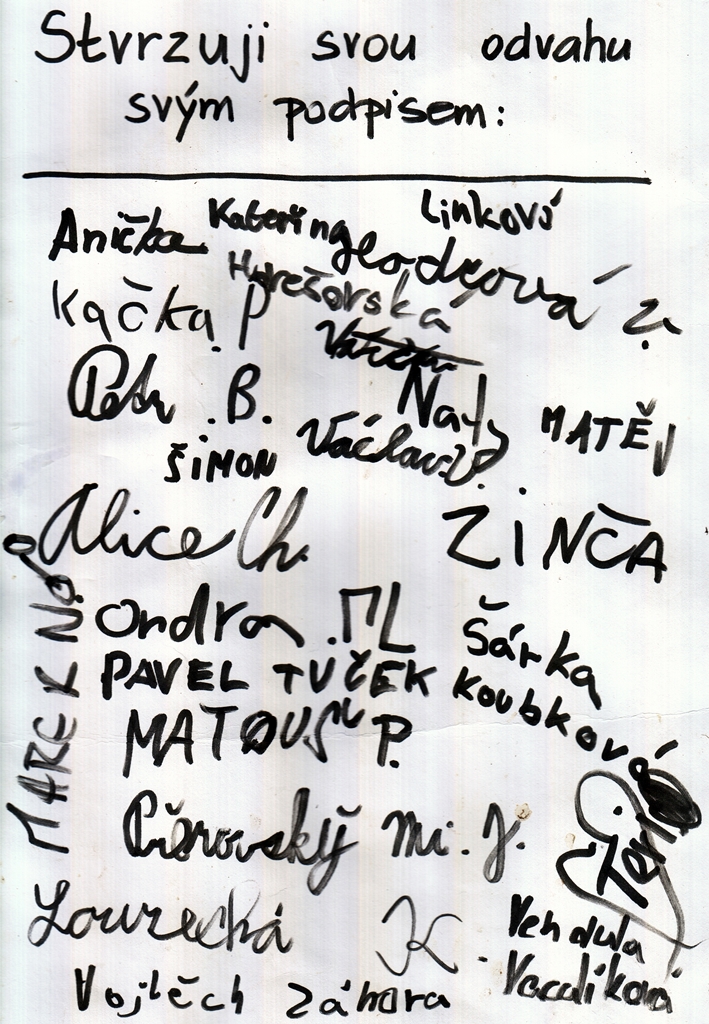 Stvrzuji svou odvahu
svým podpisem:
Anička
Kateřina
Linková
Horešovská
Kačka P
Petr .B.
Naty
MATĚJ
ŠIMON
Václav V.
Alice Ch.
ZINČA
MAREK NO
Ondra .ML
Šárka
Koubková
PAVEL TUČEK
MATOUŠ P.
Mi. J.
Terič
Lourecká K
Vendula
Vacalíková
Vojtěch Záhora